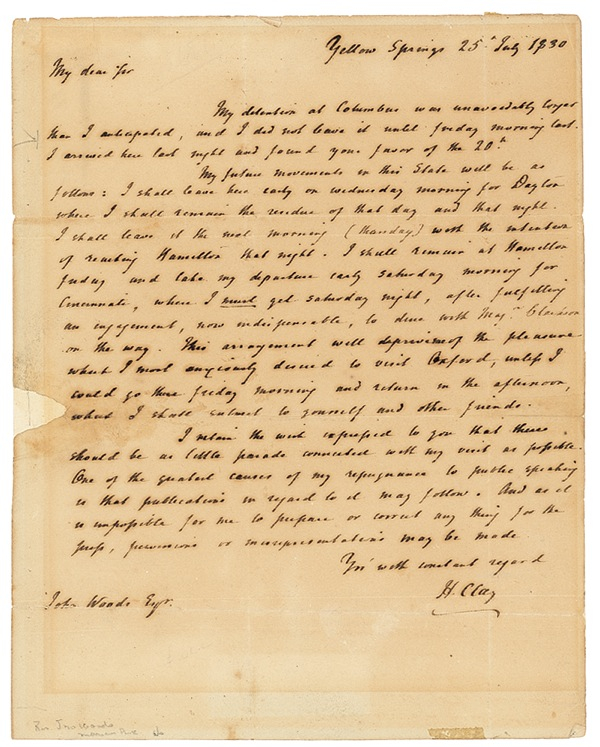 Yellow Springs 25th July 1830
My dear Sir
My detention at Columbus was unavoidably longer
than I anticipated, and I did not leave it until friday morning last.
I arrived here last night and found your favor of the 20th
My future movements in this State will be as
follows: I shall leave here early on wednesday morning for Dayton
where I shall remain the residue of that day and that night.
I shall leave it the next morning (thursday) with the intention
of reaching Hamilton that night. I shall remain at Hamilton
friday and take my departure early saturday morning for
Cincinnati, where I must get saturday night, after fulfilling
an engagement, now indispensable, to dine with Majr
on the way. This arrangement will deprive me of the pleasure
which I most anxiously desired to visit Oxford, unless I
could go there friday morning and return in the afternoon,
which I shall submit to yourself and other friends.
I retain the wish expressed to you that there
should be as little parade connected with my visit as possible.
One of the greatest causes of my repugnance to public speaking
is that publications in regard to it may follow. And as it
is impossible for me to prepare or correct any thing for the
press, perversions or misrepresentations may be made
Yrs with constant regard
H. Clay
John Woods Esqr.